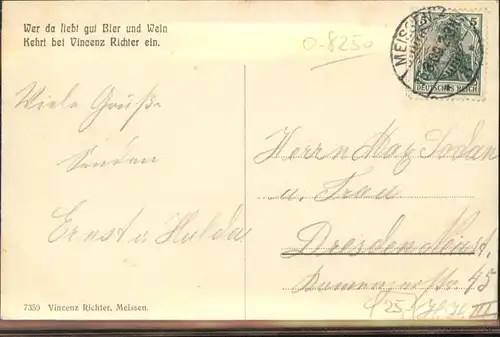 Wer da liebt gut Bier und Wein
Kehrt bei Vincenz Richter ein.
O-8250
MEISSEN
5
DEUTSCHES REICH
Viele Grüße
senden
Ernst u Hulda
Herrn Max
u. Frau
Dresden Neust.
45
25
III
7359 Vincenz Richter, Meissen.